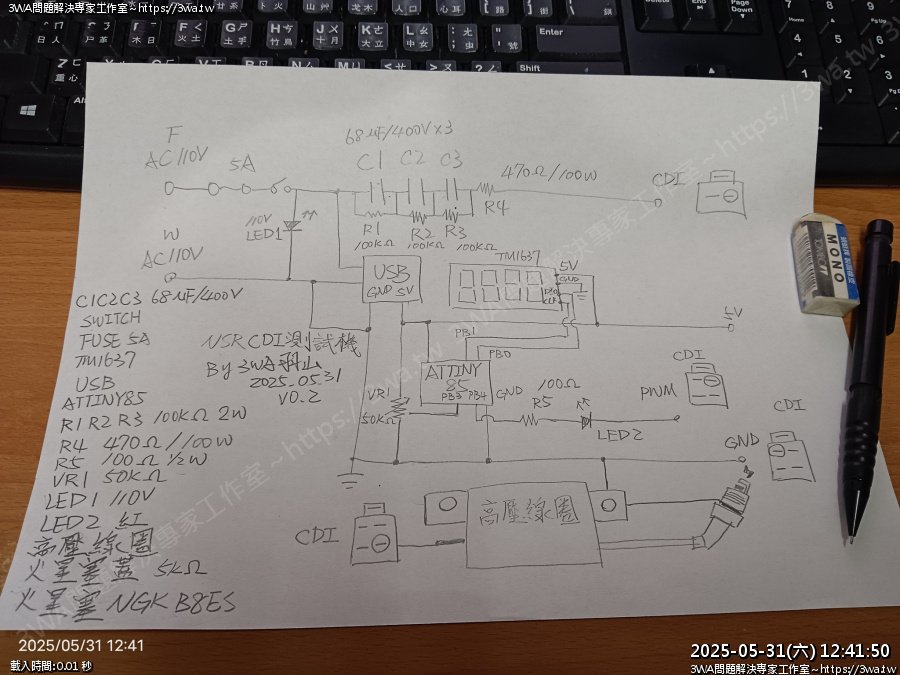 3WA問題解決專家工作室~https://3wa.tw
3WA問題解決專家工作室~https://3wa.tw
Enter
Shift
End
Page Down
Home
PgUp
Alt
F
AC110V
5A
68μF/400V×3
C1 C2 C3
470Ω/100W
R4
CDI
R1 R2 R3
100KΩ 100KΩ 100KΩ
110V
LED1
W
AC110V
USB
GND 5V
TM1637
5V
GND
DIO
CLK
5V
C1C2C3 68μF/400V
SWITCH
FUSE 5A
TM1637
USB
ATTINY85
R1 R2 R3 100KΩ 2W
R4 470Ω/100W
R5 100Ω ½W
VR1 50KΩ
LED1 110V
LED2 紅
高壓線圈
火星塞蓋 5KΩ
火星塞 NGK B8ES
NSR CDI測試機
By 3WA羽山
2025.05.31
V0.2
PB1
PB0
ATTINY
85
PB3 PB4
GND
VR1
50KΩ
100Ω
R5
LED2
PWM
CDI
CDI
GND
CDI
高壓線圈
MONO
2025/05/31 12:41
載入時間:0.01 秒
2025-05-31(六) 12:41:50
3WA問題解決專家工作室~https://3wa.tw